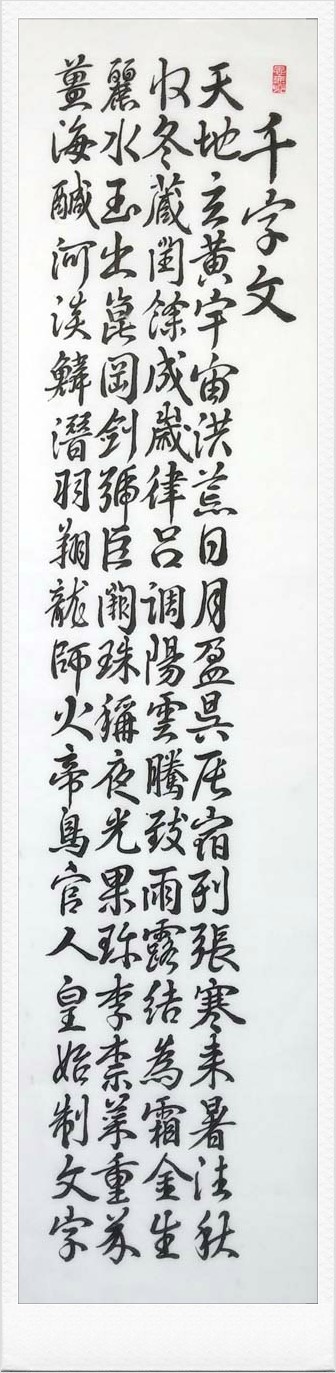 千字文
天地玄黃宇宙洪荒日月盈昃辰宿列張寒来暑往秋
收冬藏閏餘成歲律呂調陽雲騰致雨露結為霜金生
麗水玉出崑岡劍號巨闕珠稱夜光果珍李柰菜重芥
薑海醎河淡鱗潛羽翔龍師火帝鳥官人皇始制文字